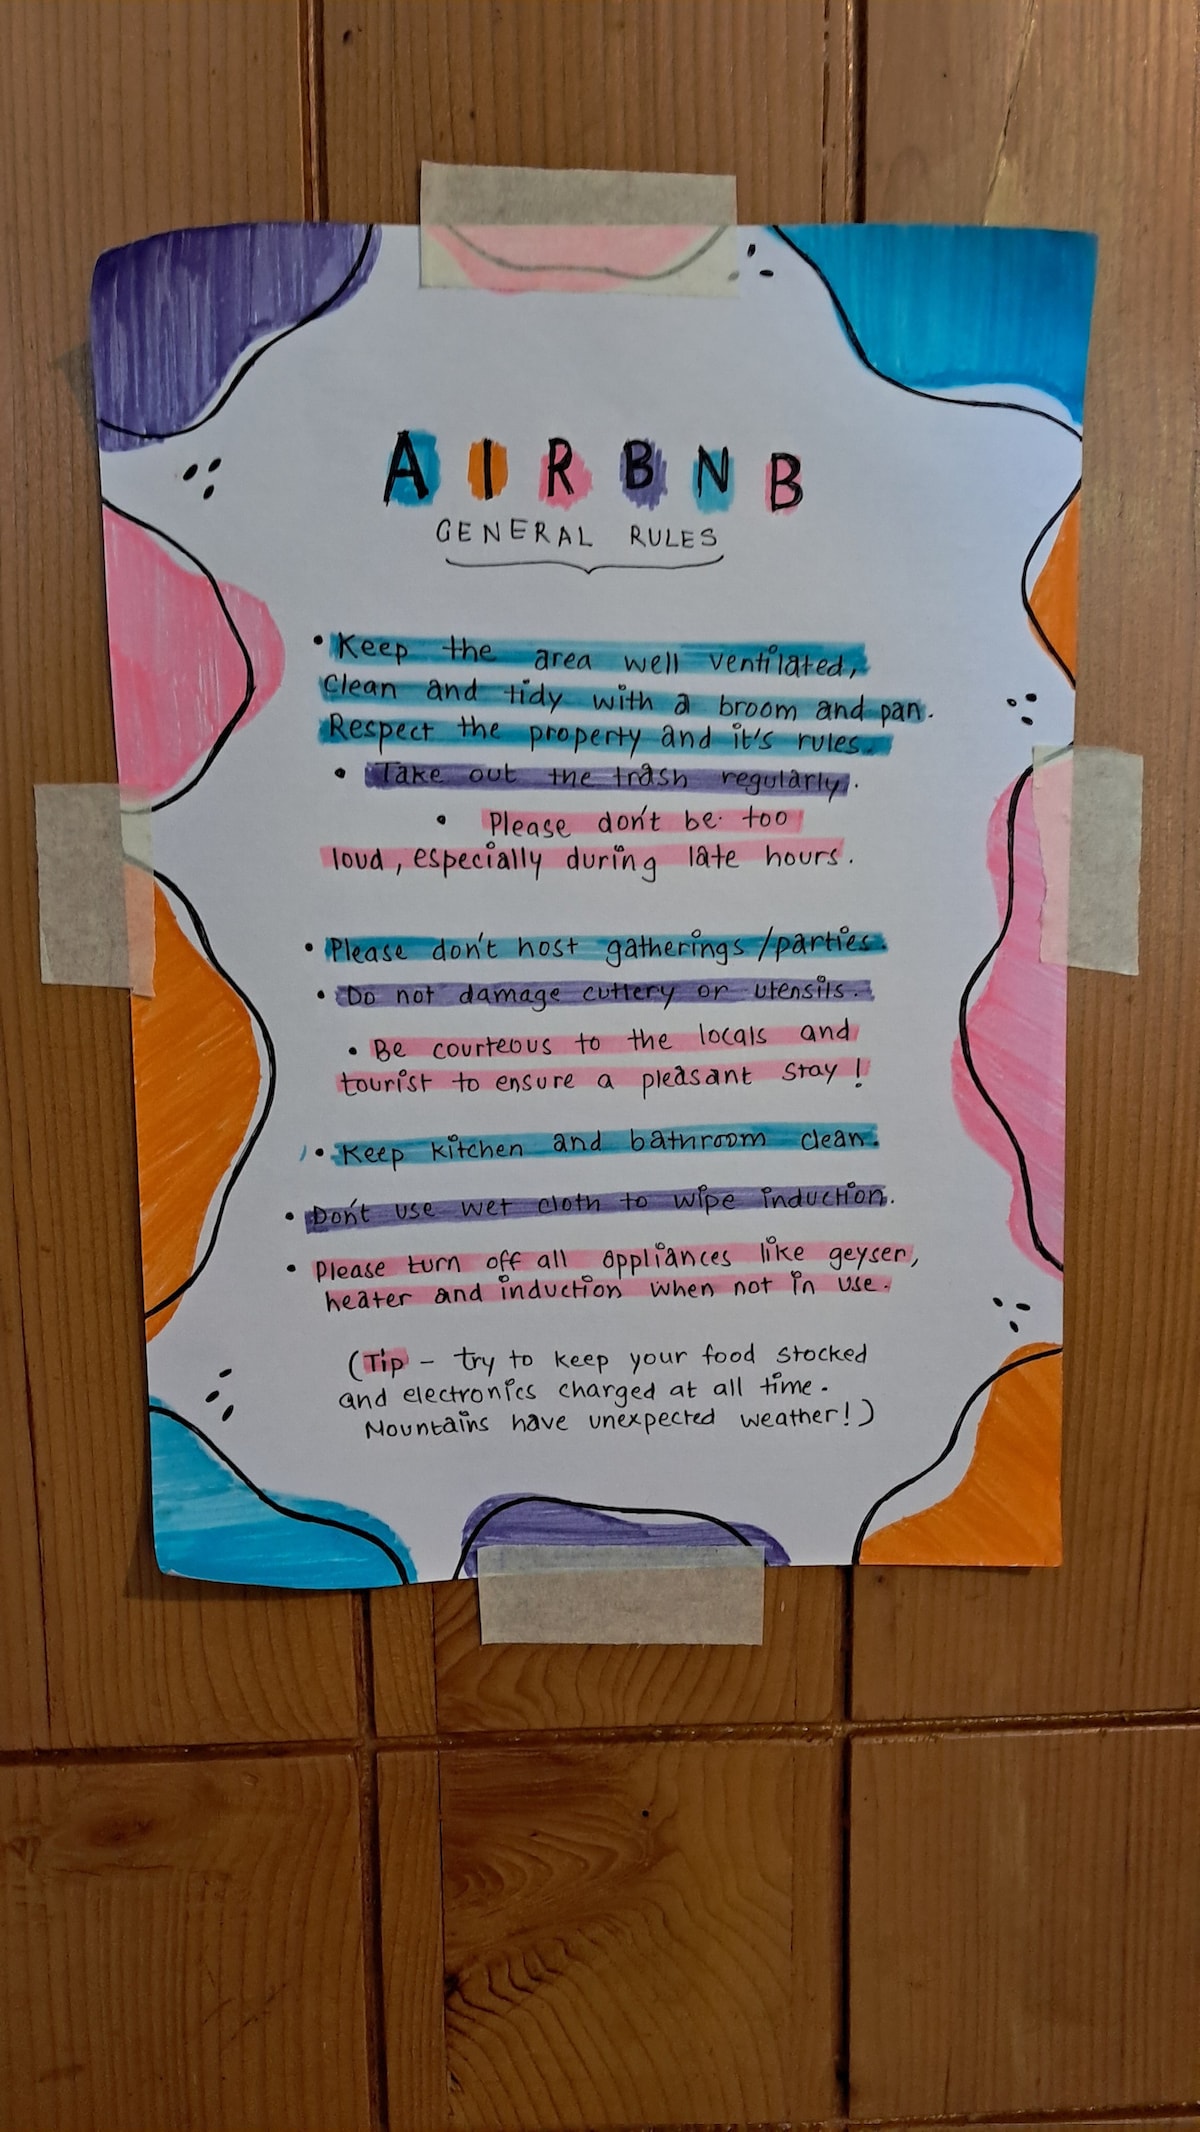 AIRBNB
GENERAL RULES
• Keep the area well ventilated,
Clean and tidy with a broom and pan.
Respect the property and it's rules.
• Take out the trash regularly.
• Please don't be too
loud, especially during late hours.
• Please don't host gatherings/parties.
• Do not damage cutlery or utensils.
• Be courteous to the locals and
tourist to ensure a pleasant stay!
• Keep kitchen and bathroom clean.
• Don't use wet cloth to wipe induction.
• Please turn off all appliances like geyser,
heater and induction when not in use.
(Tip - try to keep your food stocked
and electronics charged at all time.
Mountains have unexpected weather!)